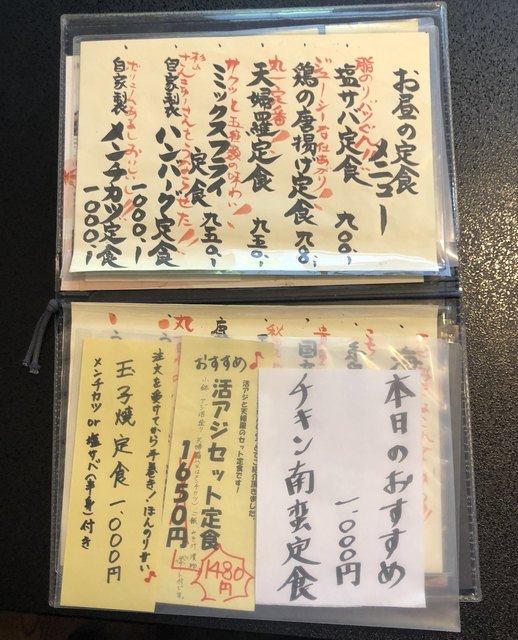 お昼の定食
メニュー
脂のりバツグン!
塩サバ定食 九〇〇.-
ジューシーな仕あがり!
鶏の唐揚げ定食 九〇〇.-
丸一定番!
天婦羅定食 九五〇.-
サクッと五種類の味わい!
ミックスフライ
定食 九五〇.-
自家製 ハンバーグ定食
一〇〇〇.-
自家製 メンチカツ定食
一〇〇〇.-
本日のおすすめ
一,〇〇〇円
チキン南蛮定食
活アジと天婦羅のセット定食です!
おすすめ♪
活アジセット定食
1,650円
1480円
注文を受けてから手巻き!ほんのり甘い♪
玉子焼定食 一,〇〇〇円
メンチカツ or 塩サバ(半身)付き